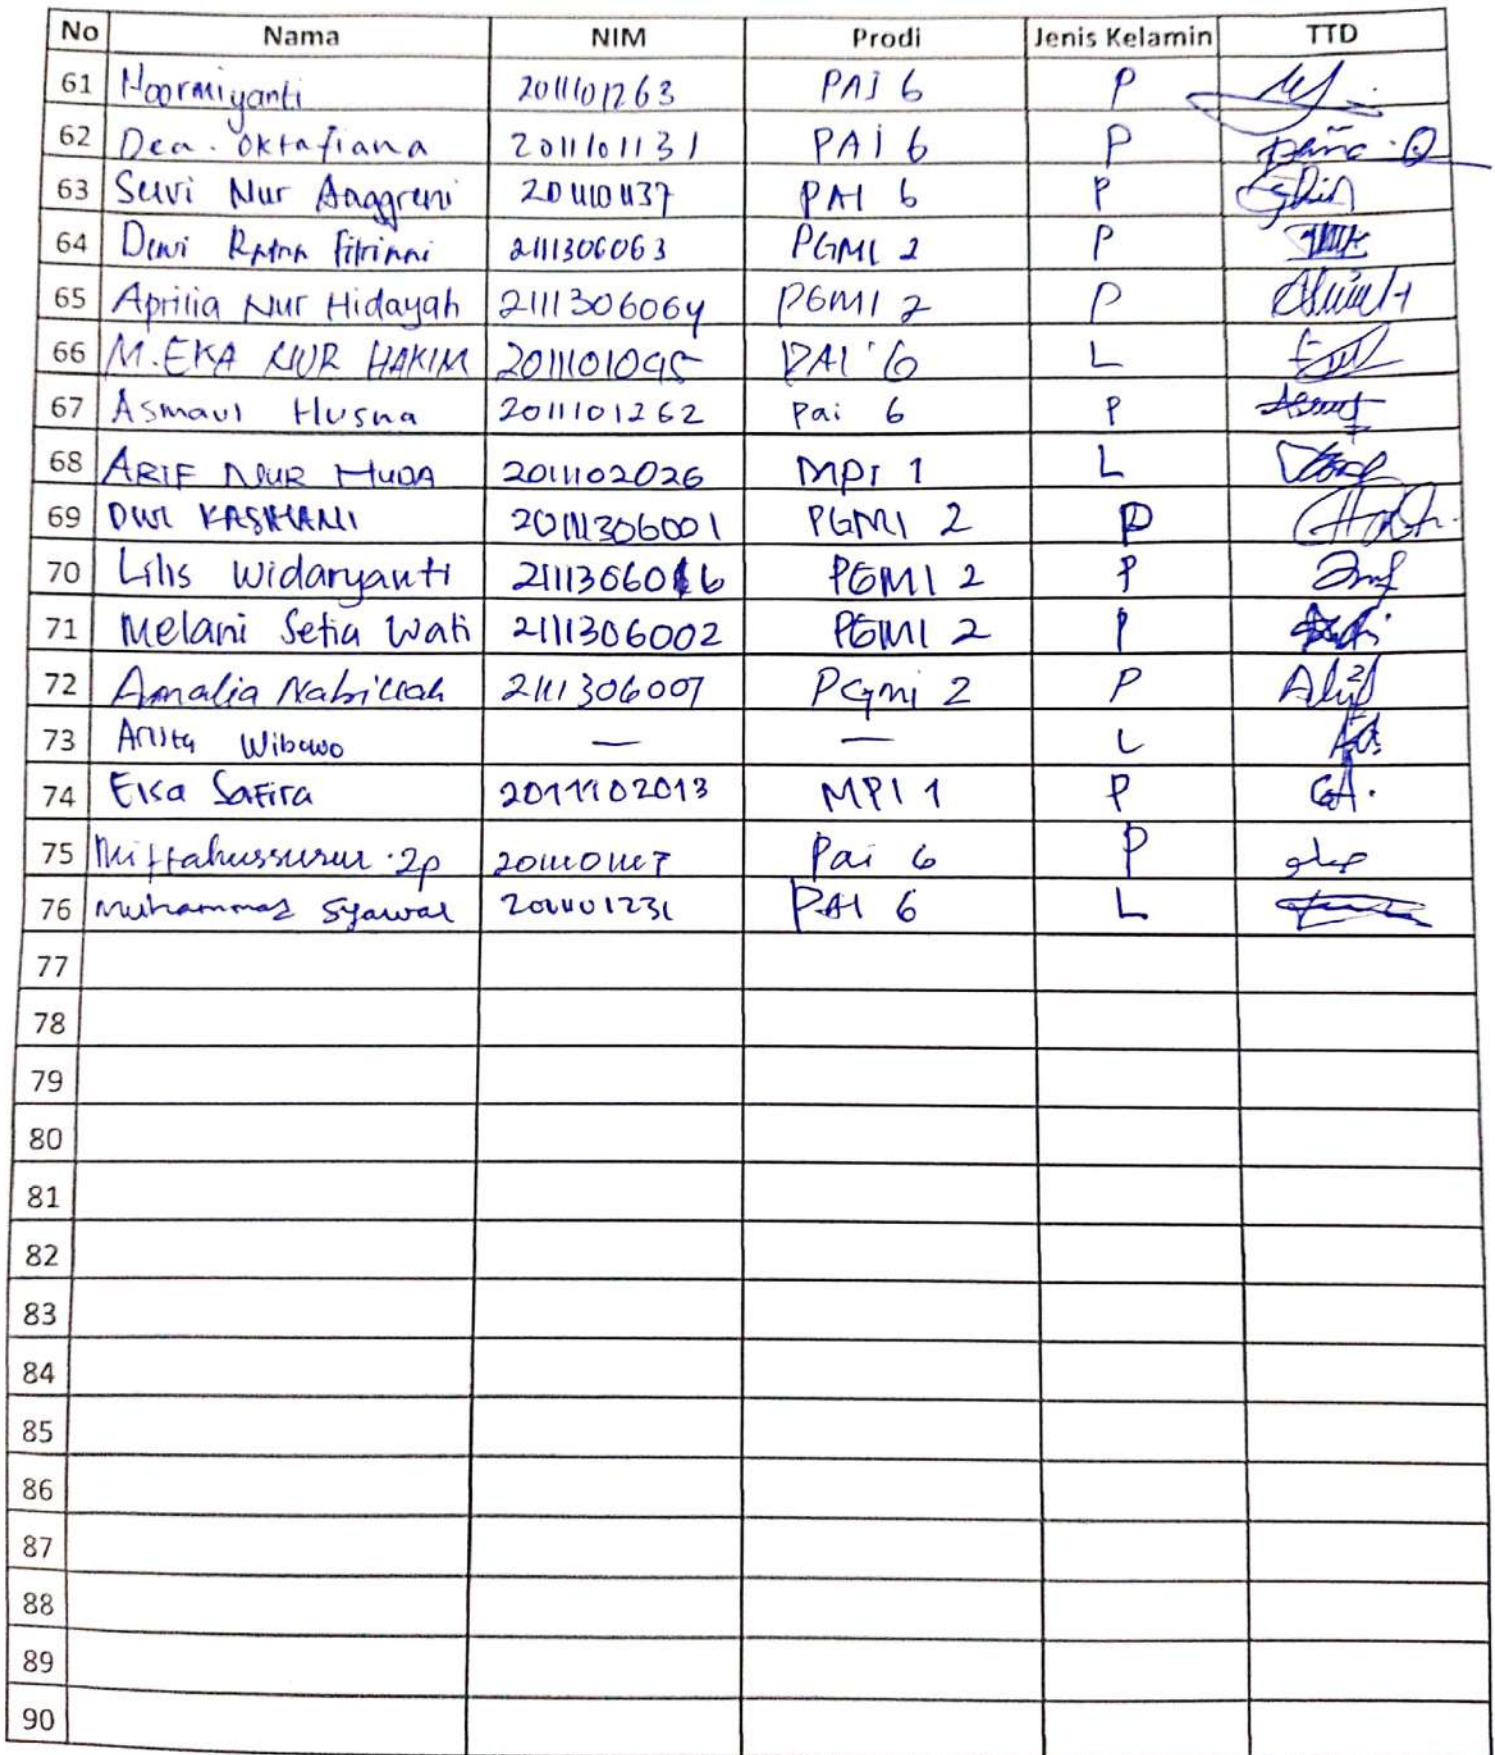 No Nama NIM Prodi Jenis Kelamin TTD
61 Noormiyanti 2011101263 PAI 6 P
62 Dea. Oktafiana 2011101131 PAI 6 P
63 Suvi Nur Anggreni PAI 6 P
64 Dewi Ratna Fitriani 2111306063 PGMI 2 P
65 Aprilia Nur Hidayah 2111306064 PGMI 2 P
66 M. EKA NUR HAKIM 2011101095 PAI 6 L
67 Asmaul Husna 2011101262 Pai 6 P
68 ARIF NUR HUDA 2011102026 MPI 1 L
69 DWI KASMANI 20111306001 PGMI 2 P
70 Lilis Widaryanti 2111306016 PGMI 2 P
71 Melani Setia Wati 2111306002 PGMI 2 P
72 Amalia Nabillah 2111306007 PGmi 2 P
73 Wibowo — — L
74 Elsa Safira 2011102013 MPI 1 P
75 Pai 6 P
76 Muhammad Syawal 2011101231 PAI 6 L
77
78
79
80
81
82
83
84
85
86
87
88
89
90